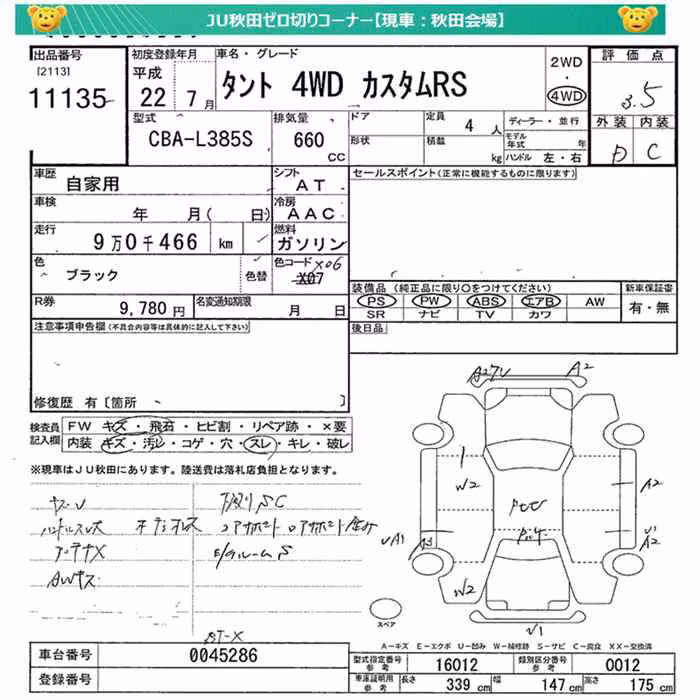 JU秋田ゼロ切りコーナー【現車：秋田会場】
出品番号 初度登録年月 車名・グレード 2WD ・ 4WD 評価点
[2113]
11135 平成 22年 7月 タント 4WD カスタムRS 3.5
型式 排気量 ドア 定員 4 人 ディーラー・並行 外装 内装
CBA-L385S 660 CC 形状 積載 kg モデル年式 年 D C
ハンドル 左・右
車歴 自家用 シフト AT セールスポイント(正常に機能するものに限ります)
車検 年 月( 日) 冷房 AAC
走行 9万0千466 km 燃料 ガソリン
色 ブラック 色替 色コード X06
X07
装備品 (純正品に限り○をつけてください) 新車保証書
R券 9,780円 名変通知期限 月 日 PS PW ABS エアB AW 有・無
SR ナビ TV カワ
注意事項申告欄(不具合内容等は具体的に記入して下さい) 後日品
修復歴 有[箇所 ]
検査員記入欄 FW キズ・飛石・ヒビ割・リペア跡・×要
内装 キズ・汚レ・コゲ・穴・スレ・キレ・破レ
※現車はJU秋田にあります。陸送費は落札店負担となります。
A2
W2
A2
A3
A2
W2
V1
スペア
ハンドルスレ
アンテナX
AWキズ
A－キズ E－エクボ U－凹み W－補修跡 S－サビ C－腐食 XX－交換済
車台番号 0045286
登録番号
型式指定番号 参考 16012 類別区分番号 参考 0012
車庫証明用 参考 長さ 339 cm 幅 147 cm 高さ 175 cm